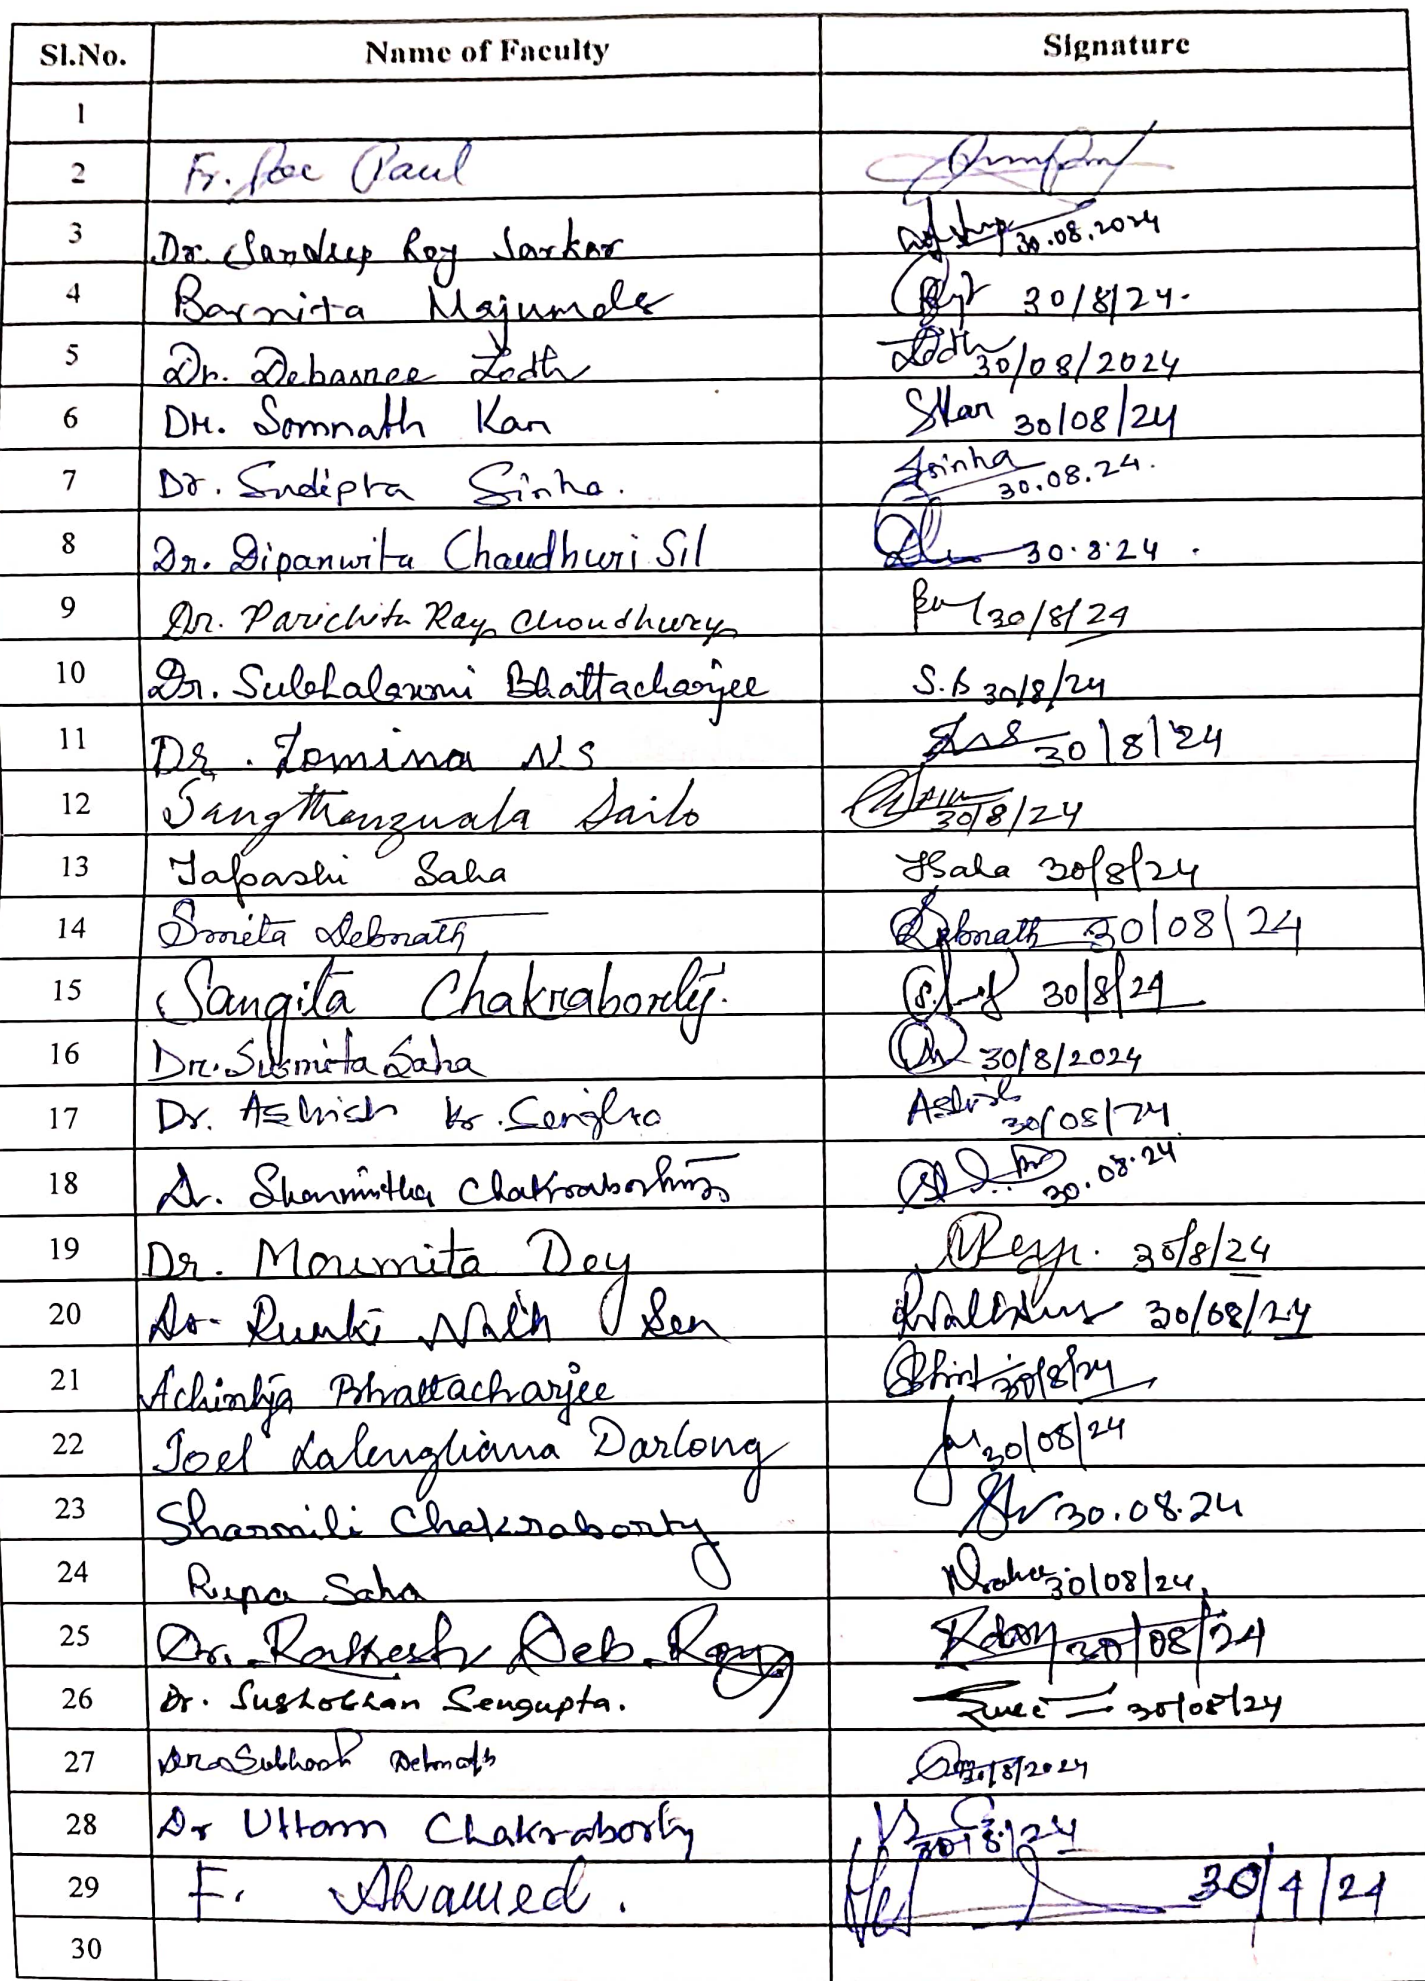 Sl.No. Name of Faculty Signature
1
2 Fr. Paul
3 Dr. Sandeep Roy Sarkar 30.08.2024
4 Barnita Majumder 30/8/24.
5 Dr. Debasree Lodh Lodh 30/08/2024
6 Dr. Somnath Kar SKar 30/08/24
7 Dr. Sudipta Sinha. Ssinha 30.08.24.
8 Dr. Dipanwita Chaudhuri Sil 30.8.24.
9 Dr. Parichita Ray Choudhury 30/8/24
10 Dr. Subhalaxmi Bhattacharjee S.B 30/8/24
11 Dr. Lomina N.S 30/8/24
12 Sangthanzuala Sailo 30/8/24
13 Tapashi Saha TSaha 30/8/24
14 Smita Debnath Debnath 30/08/24
15 Sangita Chakraborty. 30/8/24
16 Dr. Susmita Saha 30/8/2024
17 Dr. Ashish Kr. Ashish 30/08/24
18 Dr. Sharmistha Chakraborty 30.08.24
19 Dr. Moumita Dey 30/8/24
20 Dr. Runki Nath Sen 30/08/24
21 Achintya Bhattacharjee 30/8/24
22 Joel Lalengliana Darlong 30/08/24
23 Sharmili Chakraborty 30.08.24
24 Rupa Saha 30/08/24
25 Dr. Rakesh Deb Roy 30/08/24
26 Dr. Sushobhan Sengupta. 30/08/24
27 Debnath 30/8/2024
28 Dr Uttam Chakraborty 30/8/24
29 F. Ahamed. 30/4/24
30